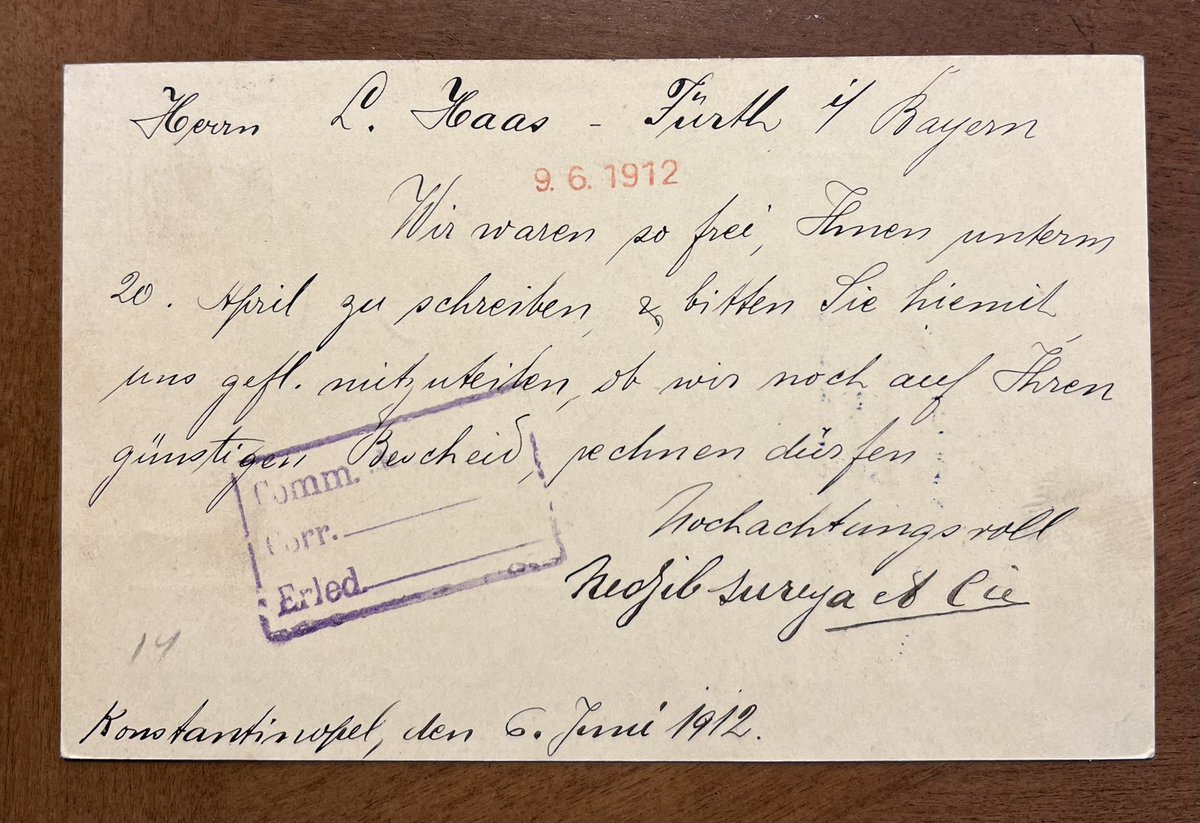 Herrn L. Haas - Fürth i/ Bayern
9. 6. 1912
Wir waren so frei, Ihnen unterm
20. April zu schreiben, & bitten Sie hiemit,
uns gefl. mitzuteilen, ob wir noch auf Ihren
günstigen Bescheid, rechnen dürfen
Hochachtungsvoll
Nedjib Sureya et Cie
Comm.
Corr.
Erled.
14
Konstantinopel, den 6. Juni 1912.